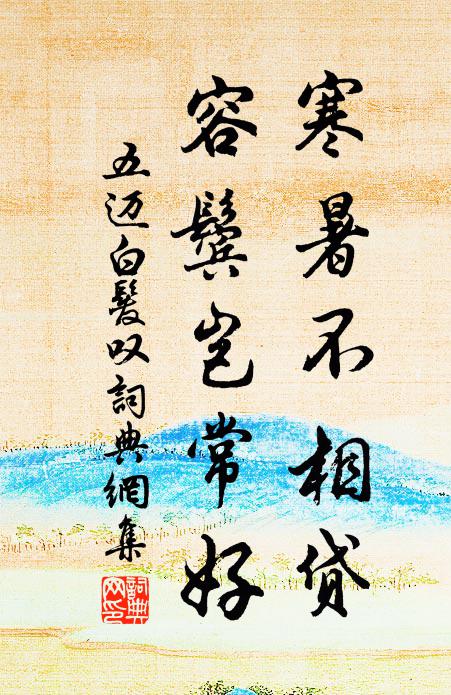 寒暑不相贷
容鬓岂常好
五迈白髮叹詞典網集
詞典網印